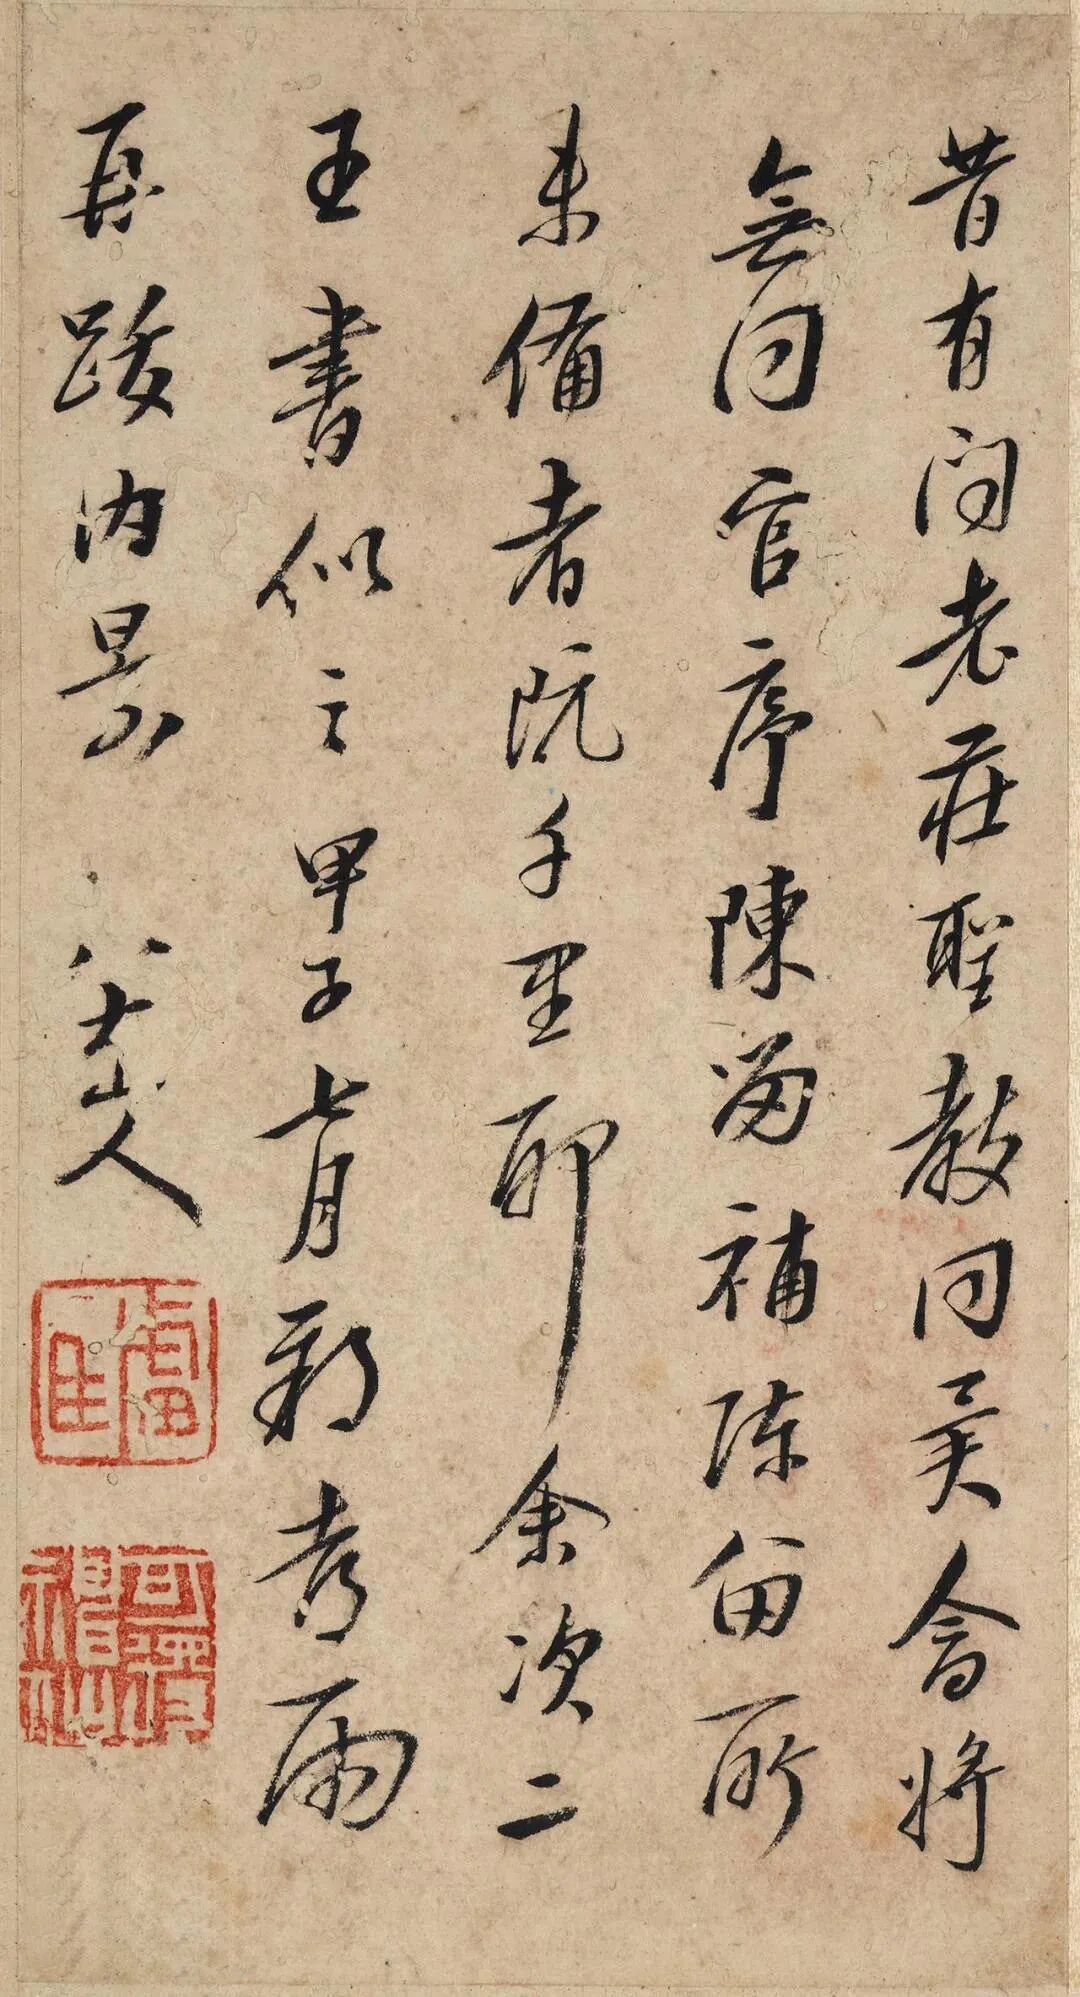 昔有問老莊聖教同異會將
無同官序陳留補陈留所
未備者既千里耶余次二
王書似之甲子七月新者雨
再跋内景 八大山人